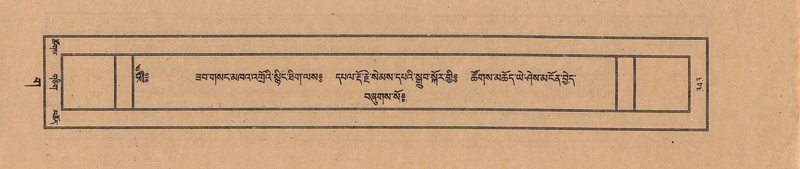 ཟབ་གསང་མཁའ་འགྲོའི་སྙིང་ཐིག་ལས༔ དཔལ་རྡོ་རྗེ་སེམས་དཔའི་སྒྲུབ་སྐོར་གྱི༔ ཚོགས་མཆོད་ཡེ་ཤེས་མངོན་བྱེད་
བཞུགས་སོ༔
༣༤༣